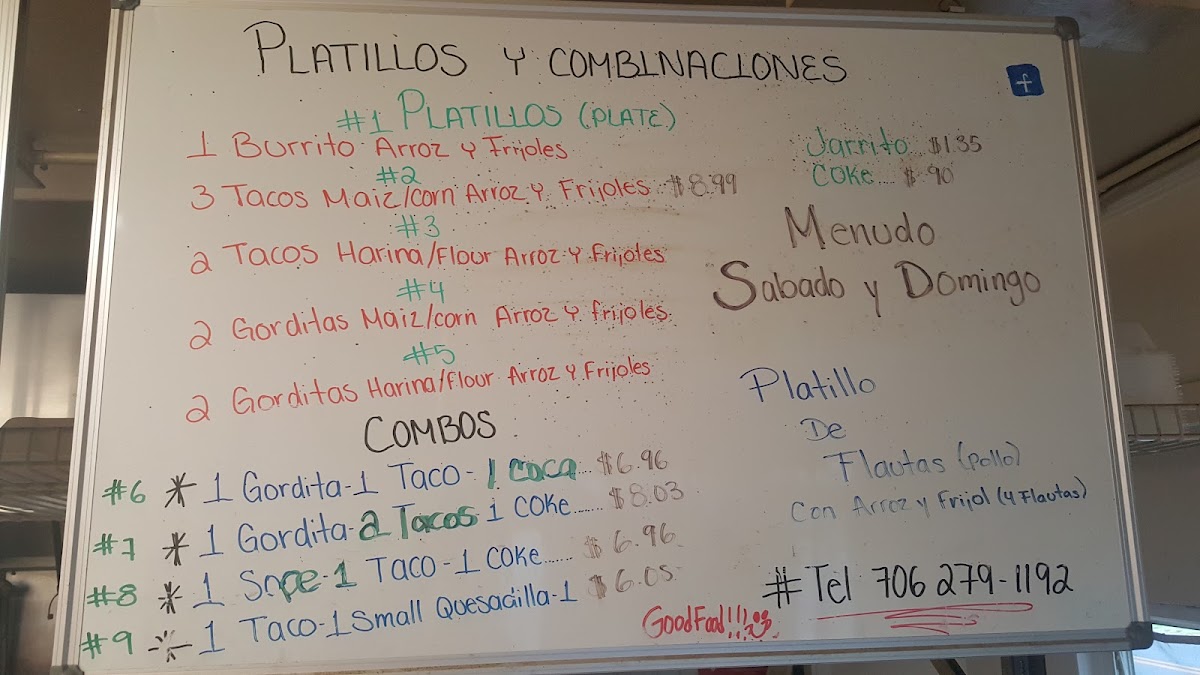 PLATILLOS Y COMBINACIONES
f
#1 PLATILLOS (PLATE)
1 Burrito Arroz y Frijoles
#2
3 Tacos Maiz/corn Arroz y Frijoles $8.99
#3
2 Tacos Harina/Flour Arroz y Frijoles
#4
2 Gorditas Maiz/corn Arroz y frijoles
#5
2 Gorditas Harina/Flour Arroz y Frijoles
COMBOS
#6 * 1 Gordita-1 Taco-1 coca... $6.96
#7 * 1 Gordita-2 Tacos 1 COKe....... $8.03
#8 * 1 Sope-1 Taco-1 COKe....... $6.96
#9 * 1 Taco-1 Small Quesadilla-1 $6.05
Jarrito.. $1.35
COKe.... $.90
Menudo
Sabado y Domingo
Platillo
De
Flautas (pollo)
Con Arroz y Frijol (4 Flautas)
#Tel 706 279-1192
Good Food!!!